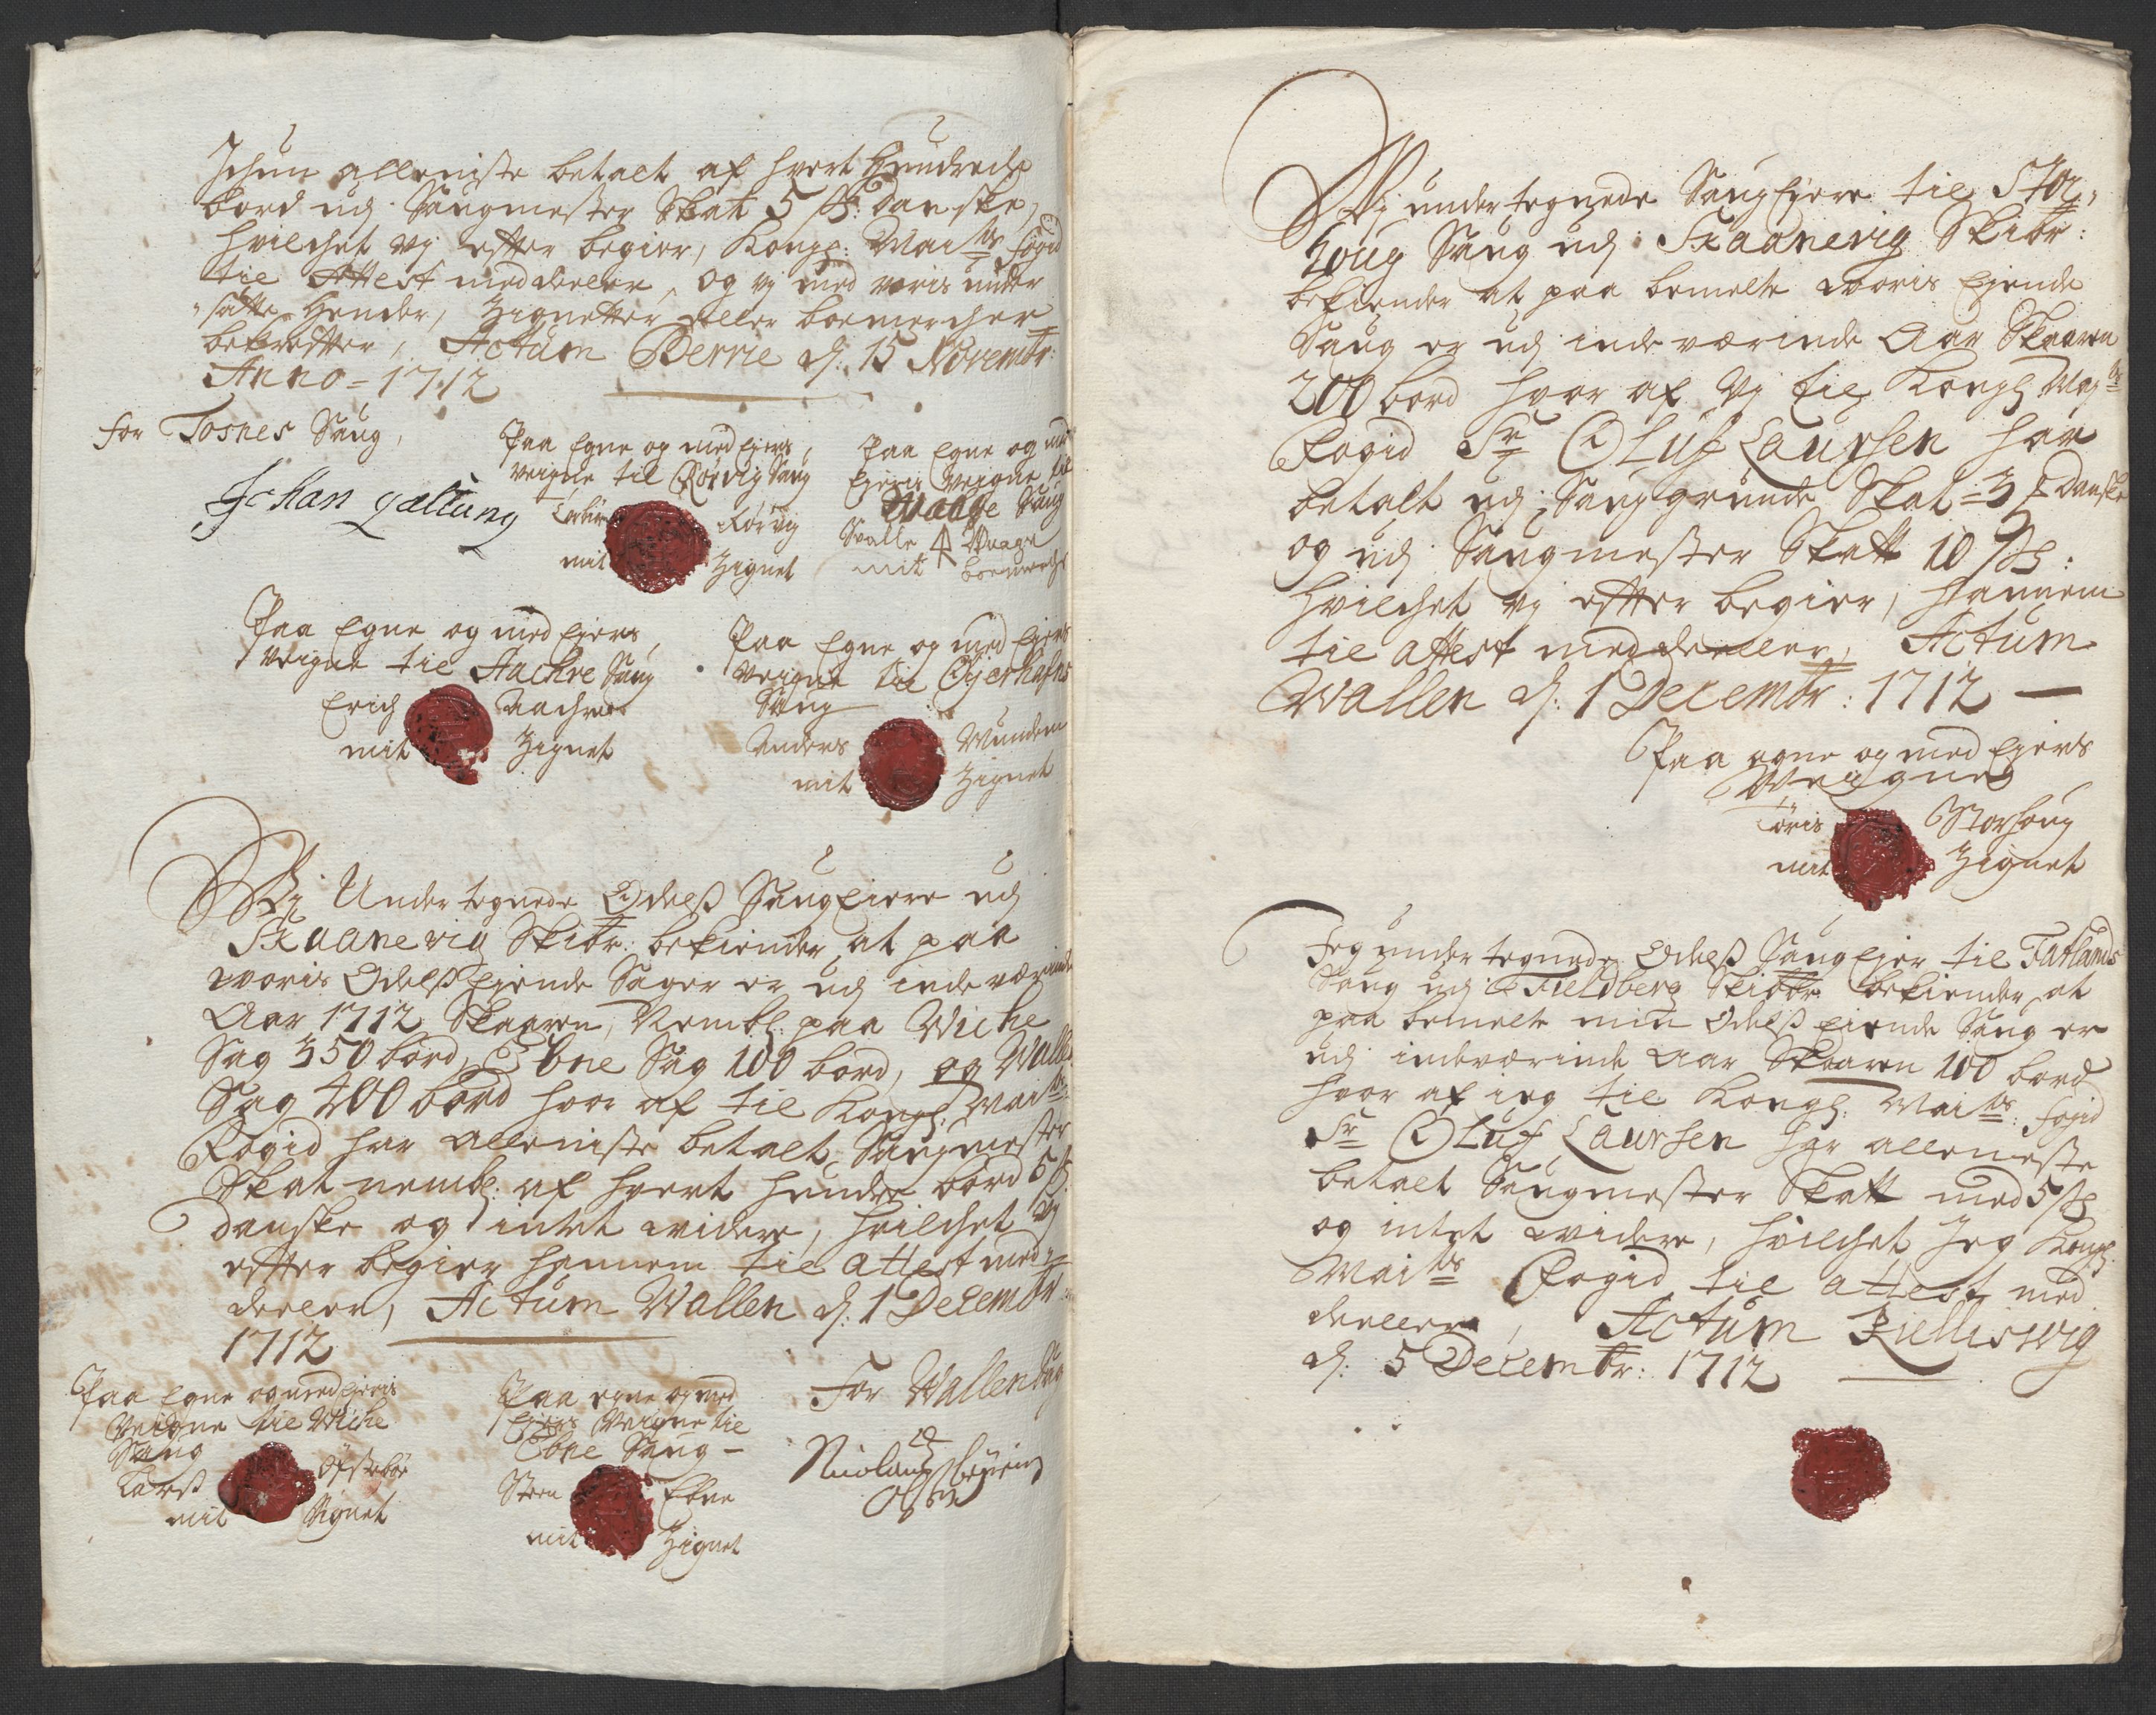 Ichun alleniste betalt af hvert Hundrede
bord udj Saugmester Skatt 5 ß: danske,
hvilchet vj efter begier, Kongl: Maits fogid
til Attest meddeeler, og vj med voris under
satte Hender, Zignetter eller boemercher
bekrefter, Actum Berrie d: 15 Novembr:
Anno = 1712
for Tosnes Saug,
Johan gæltung
Paa Egne og med Ejers,
veigne til Rørvig Saug
Rørvig
mit Zignet
Paa Egne og med
Ejeris Veigne til
Waage Saug
Waage
mit boemerche
Paa Egne og med Ejers,
veigne til Aachre Saug
Erich Aachre
mit Zignet
Paa Egne og med Ejers
veigne til Øjerhafns
Saug
Anders
mit Zignet
Wj Undertegnede Odelß Saugejere udj
Skaanevig Skibr: bekiender, at paa
voris Odelß Ejende Sager er udj indeværinde
Aar 1712 Skaaren, Nembl: paa Wiche
Sag 350 bord, Ebne Sag 100 bord, og Wallen
Sag 400 bord hvor af til Kongl: Maits:
Fogid har alleniste betalt, Saugmester
Skat nembl: af hvert hundre bord 5 ß
danske og intet widere, hvilchet vj
efter begier hannem til attest med=
deeler, Actum Wallen d: 1 Decembr:
1712
Paa Egne og med Ejeris
Veigne til Wiche
Saug
Larß Øfstebøe
mit Signet
Paa egne og med
Ejers Veigne til
Ebne Saug -
Steen Ebne
mit Zignet
For Wallen Sag
Nicolaus
Wj undertegnede Saug Ejere til Stor,
houg Saug udj Skaanevig Skibr:
bekiender at paa bemelte woris Ejende
Saug er udj indeværinde Aar Skaaren
200 bord hvor af vj til Kongl: Mayts
Fogid Sr Oluf Laursen har
betalt udj Saug grunde Skat = 3 danske
og udj Saugmester Skatt 10 ß:
hvilchet vj efter begier, hannem
til attest meddeeler, Actum
Wallen d: 1 Decembr: 1712 —
Paa egne og med Ejers
Weigne
Tøris Storhoug
mit Zignet
Jeg undertegnede Odelß Saug Ejer til Fatlands
Saug udj Fieldberg Skibbr: bekiender at
paa bemelte min Odelß Eiende Saug er
udj indeværinde Aar Skaaren 100 bord
hvor af ieg til Kongl: Maits: fogid
Sr Oluf Laursen har alleneste
betalt Saugmester Skatt med 5 ß
og intet widere, hvilchet Jeg Kongl:
Maits Fogid til attest med
deeler, Actum Kiellisvig
d: 5 Decembr: 1712